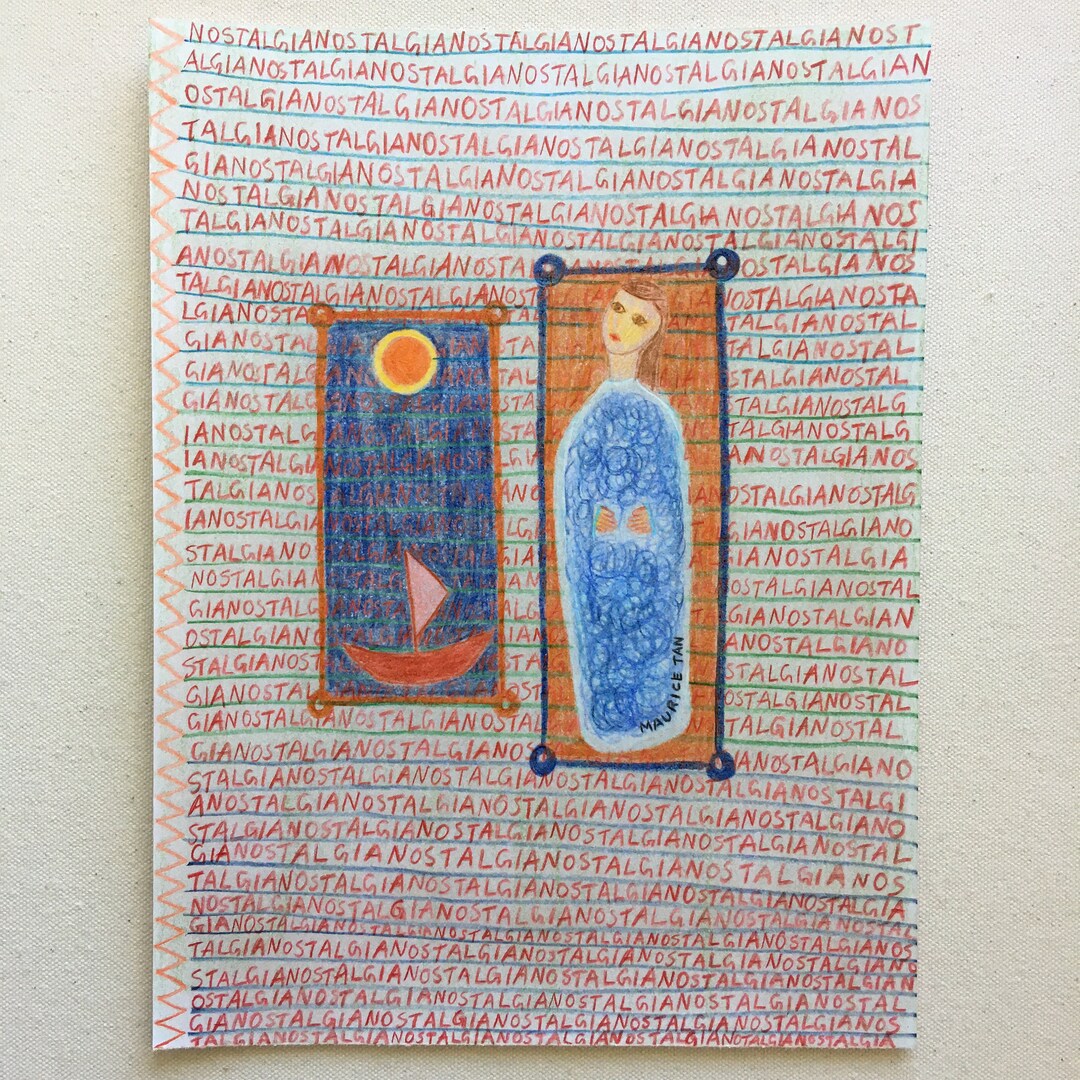 NOSTALGIANOSTALGIANOSTALGIANOSTALGIANOSTALGIANOST
ALGIANOSTALGIANOSTALGIANOSTALGIANOSTALGIANOSTALGIAN
OSTALGIANOSTALGIANOSTALGIANOSTALGIANOSTALGIANOS
TALGIANOSTALGIANOSTALGIANOSTALGIANOSTALGIANOSTAL
GIANOSTALGIANOSTALGIANOSTALGIANOSTALGIANOSTALGIA
NOSTALGIANOSTALGIANOSTALGIANOSTALGIANOSTALGIANOS
TALGIANOSTALGIANOSTALGIANOSTALGIANOSTALGIANOSTALGI
ANOSTALGIANOSTALGIANOSTALGIANOS OSTALGIANOS
TALGIANOSTALGIANOSTALGIANOST NOSTALGIANOSTA
LGIANOSTA TALGIANOSTAL
GIANOSTALG TALGIANOSTAL
GIANOSTALGI TALGIANOSTAL
GIANOSTALG TALGIANOSTALG
IANOSTALG TALGIANOSTALG
IANOSTALGI ANOSTALGIANOS
TALGIANOSTAL NOSTALGIANOSTALG
IANOSTALGI GIANOSTALGIANO
STALGIANO GIANOSTALGIA
NOSTALGIAN NOSTALGIANOSTAL
GIANOSTALG GIANOSTALGIAN
OSTALGIANO ANOSTALGIANO
STALGIANOST STALGIANOSTAL
GIANOSTALGI OSTALGIANOSTAL
GIANOSTALG TALGIANOSTAL
GIANOSTALGIANOSTALGIANOS ANOSTALGIANO
STALGIANOSTALGIANOSTALGIANOSTALGIANOSTALGIANOSTALGI
ANOSTALGIANOSTALGIANOSTALGIANOSTALGIANOSTALGIANO
STALGIANOSTALGIANOSTALGIANOSTALGIANOSTALGIANOSTAL
GIANOSTALGIANOSTALGIANOSTALGIANOSTALGIANOS
TALGIANOSTALGIANOSTALGIANOSTALGIANOSTALGIANOSTALGIA
NOSTALGIANOSTALGIANOSTALGIANOSTALGIANOSTALGIANOSTAL
GIANOSTALGIANOSTALGIANOSTALGIANOSTALGIANOSTALGIANOSTALGIANOS
TALGIANOSTALGIANOSTALGIANOSTALGIANOSTALGIANOSTALGIANO
STALGIANOSTALGIANOSTALGIANOSTALGIANOSTALGIANOSTALGIAN
OSTALGIANOSTALGIANOSTALGIANOSTALGIANOSTALGIANOSTAL
GIANOSTALGIANOSTALGIANOSTALGIANOSTALGIANOSTALGIANOS
TALGIANOSTALGIANOSTALGIANOSTALGIANOSTALGIANOSTALGIANOSTALGIA
MAURICE TAN